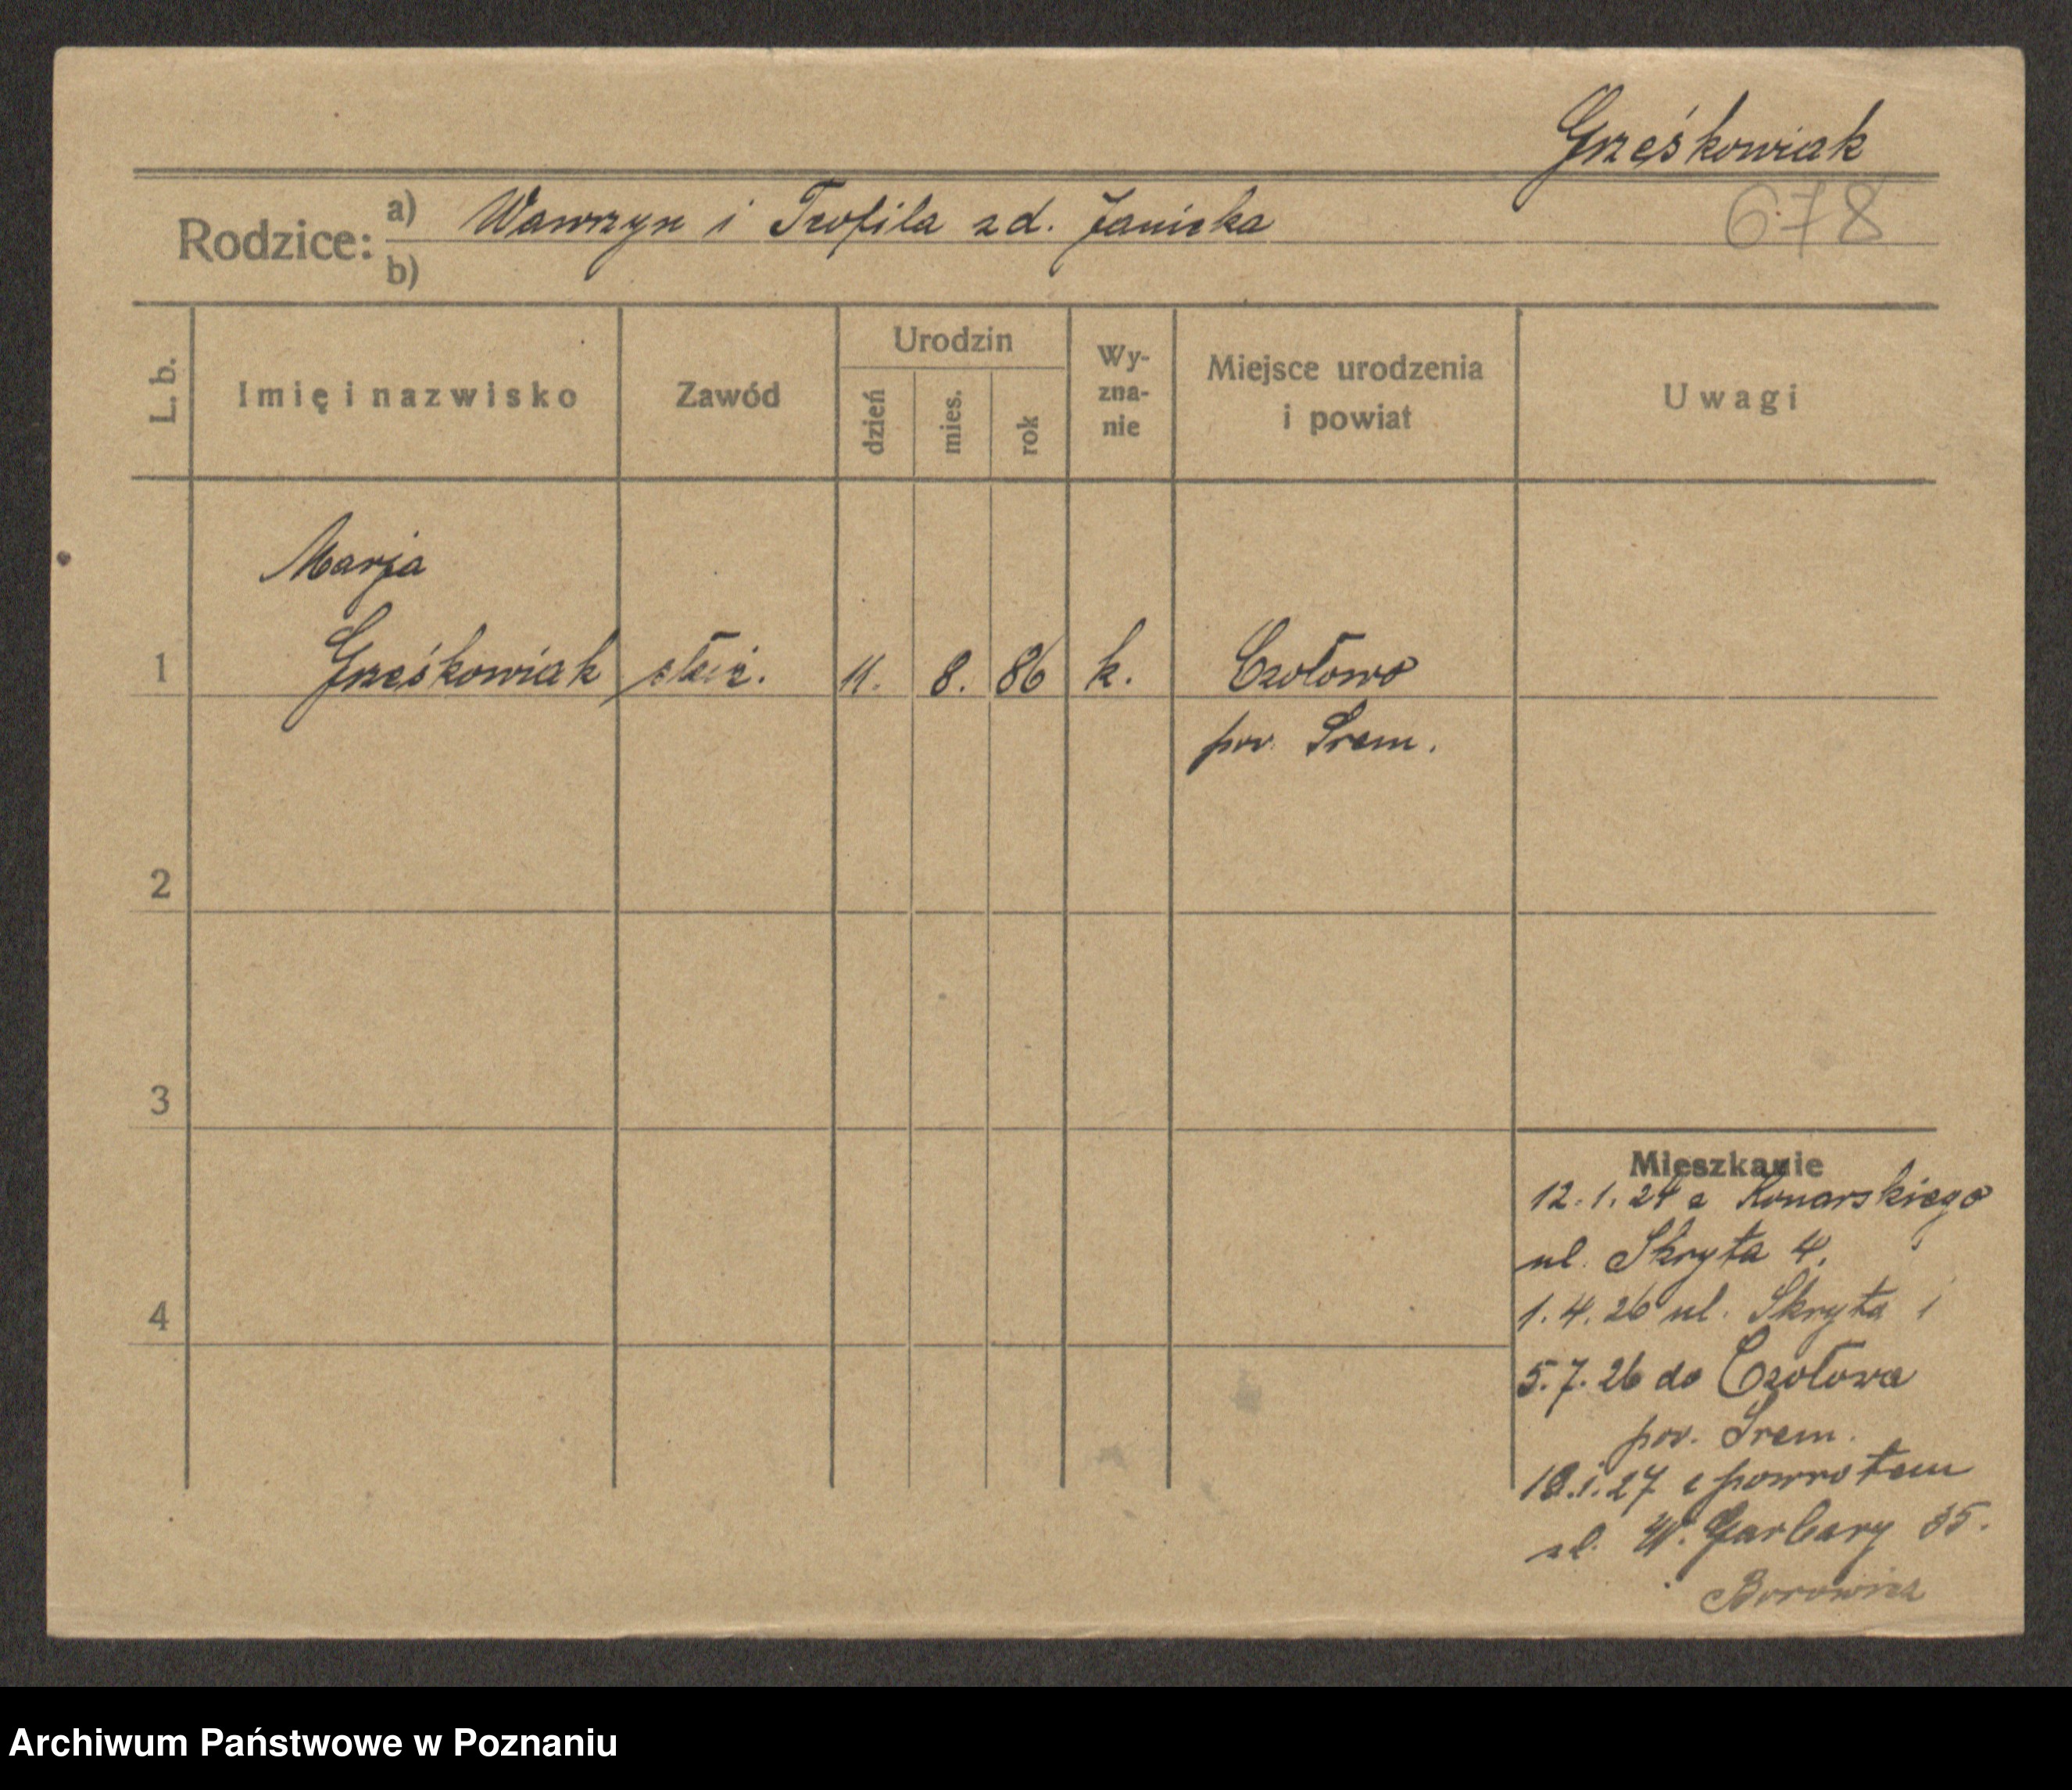 Grześkowiak
678
Rodzice:
a) Wawrzyn i Teofila zd. Janicka
b)
L. b.
Imię i nazwisko
Zawód
Urodzin
dzień
mies.
rok
Wy-
zna-
nie
Miejsce urodzenia
i powiat
Uwagi
Marja
1 Grześkowiak służ. 11. 8. 86 k. Czołowo
pow. Śrem.
2
3
4
Mieszkanie
12.1.24 z Konarskiego
ul. Skryta 4.
1.4.26 ul. Skryta 1
5.7.26 do Czołowa
pow. Śrem.
18.1.27 z powrotem
ul. W. Garbary 35.
Borowicz
Archiwum Państwowe w Poznaniu